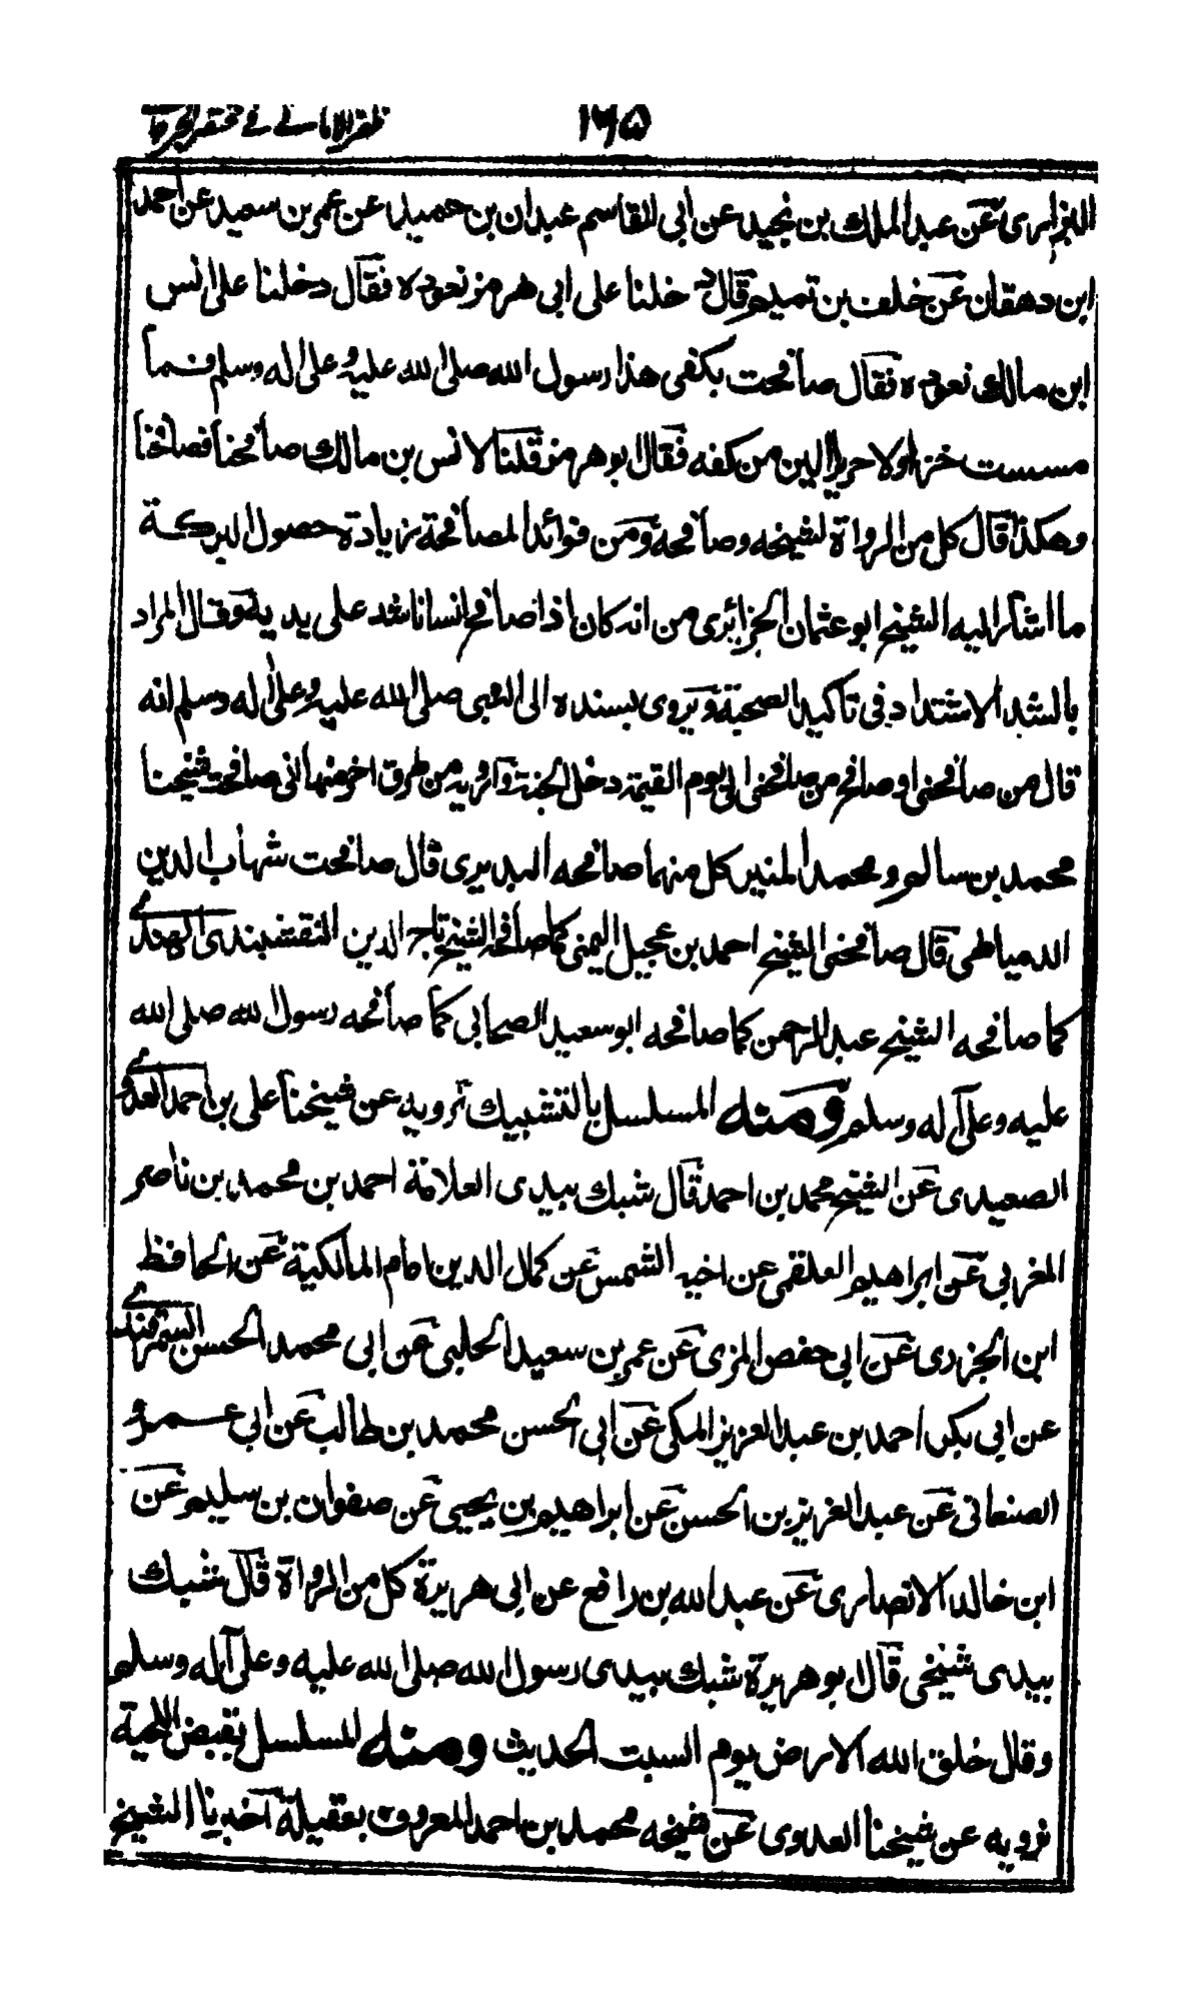 ١٦٥ ظفر الاماني في مختصر الجرجاني
البزاري عن عبد الملك بن نجيد عن ابي القاسم عبدان بن حميد عن عمر بن سعيد عن احمد
ابن دهقان عن خلف بن تميم قال دخلنا على ابي هرمز نعوده فقال دخلنا على انس
ابن مالك نعوده فقال صافحت بكفى هذا رسول الله صلى الله عليه وعلى اله وسلم فما
مسست خزا ولا حريرا الين من كفه فقال ابو هرمز قلنا لانس بن مالك صافحنا فصافحنا
وهكذا قال كل من الرواة لشيخه وصافحه ومن فوائد المصافحة زيادة حصول البركة
ما اشار اليه الشيخ ابو عثمان الجزائرى من انه كان اذا صافح انسانا شد على يديه وقال المراد
بالشد الاشتداد فى تاكيد الصحبة ويروى بسنده الى النبى صلى الله عليه وعلى اله وسلم انه
قال من صافحنى او صافح من صافحنى الى يوم القيمة دخل الجنة وارويه من طرق اخر منها انى صافحت شيخنا
محمد بن سالم ومحمد المنير كل منهما صافحه البديرى قال صافحت شهاب الدين
الدمياطى قال صافحنى الشيخ احمد بن عجيل اليمنى كما صافحه الشيخ تاج الدين النقشبندى الهندى
كما صافحه الشيخ عبد الرحمن كما صافحه ابو سعيد الصحابي كما صافحه رسول الله صلى الله
عليه وعلى آله وسلم ومنه المسلسل بالتشبيك نرويه عن شيخنا على بن احمد العدوى
الصعيدى عن الشيخ محمد بن احمد قال شبك بيدى العلامة احمد بن محمد بن ناصر
المغربي عن ابراهيم العلقمى عن اخيه الشمس عن كمال الدين امام المالكية عن الحافظ
ابن الجزرى عن ابي حفص المزى عن عمر بن سعيد الحلبى عن ابي محمد الحسن السمرقندى
عن ابي بكر احمد بن عبد العزيز المكى عن ابى الحسن محمد بن طالب عن ابي عمرو
الصنعانى عن عبد العزيز بن الحسن عن ابراهيم بن يحيى عن صفوان بن سليم عن
ابن خالد الانصارى عن عبد الله بن رافع عن ابى هريرة كل من الرواة قال شبك
بيدى شيخى قال ابو هريرة شبك بيدى رسول الله صلى الله عليه وعلى آله وسلم
وقال خلق الله الارض يوم السبت الحديث ومنه المسلسل بقبض اللحية
نرويه عن شيخنا العدوى عن شيخه محمد بن احمد المعروف بعقيلة اخبرنا الشيخ